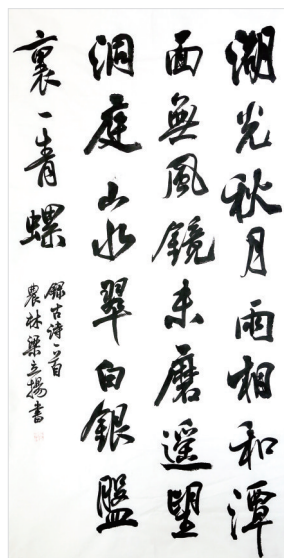 湖光秋月兩相和潭
面無風鏡未磨遥望
洞庭山水翠白銀盤
裏一青螺
録古诗一首
農林梁立揚書